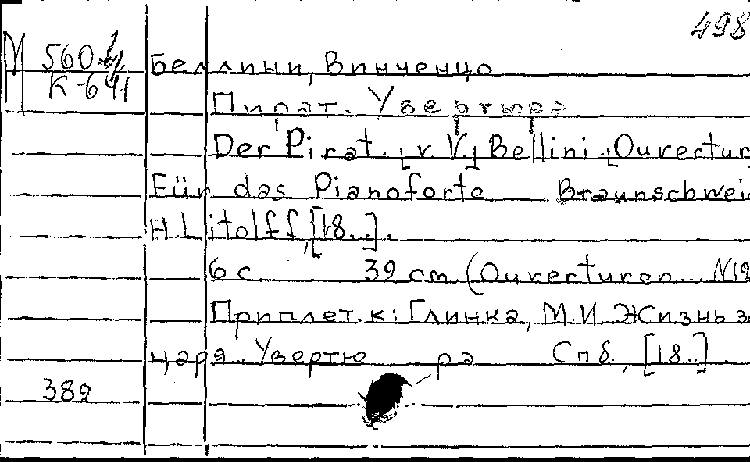 498
М 560
К-641
Беллини, Винченцо
Пират. Увертюра
Der Pirat. [v. V.] Bellini. [Ouvertur
Für das Pianoforte Braunschwei
H. Litolff, [18..].
6 с. 39 cm (Ouverturen N12
Приплет. к: Глинка, М.И. Жизнь за
царя. Увертю ра Спб., [18..]
389